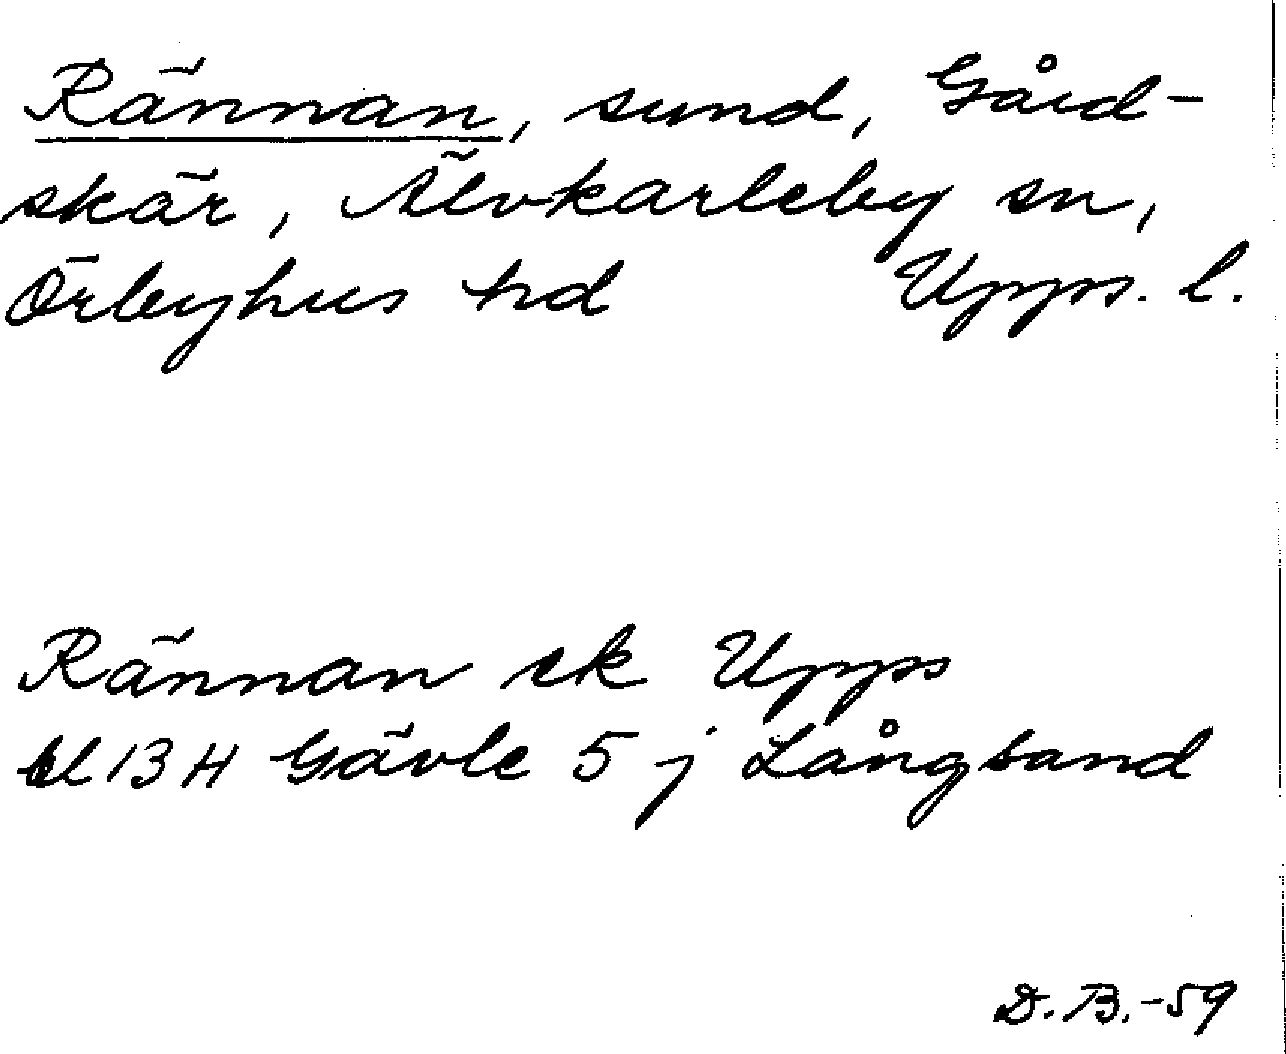 Rännan, sund, Gård-
skär, Älvkarleby sn,
Örbyhus hd Upps. l.
Rännan ek Upps
bl 13 H Gävle 5 j Långsand
D. B. -59